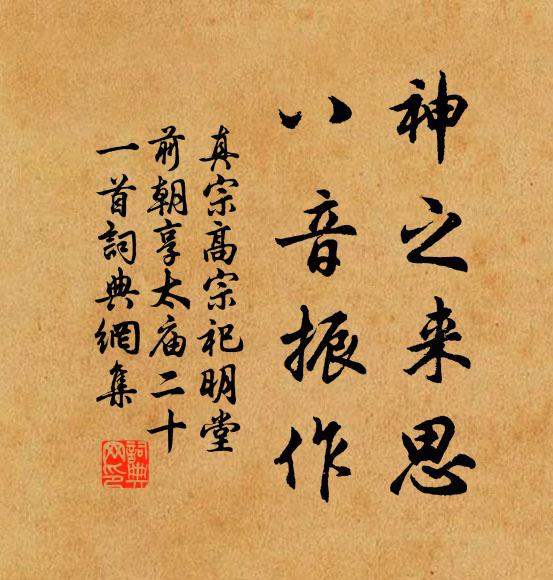 神之来思
八音振作
真宗高宗祀明堂
前朝享太庙二十
一首詞典網集
詞典
网印